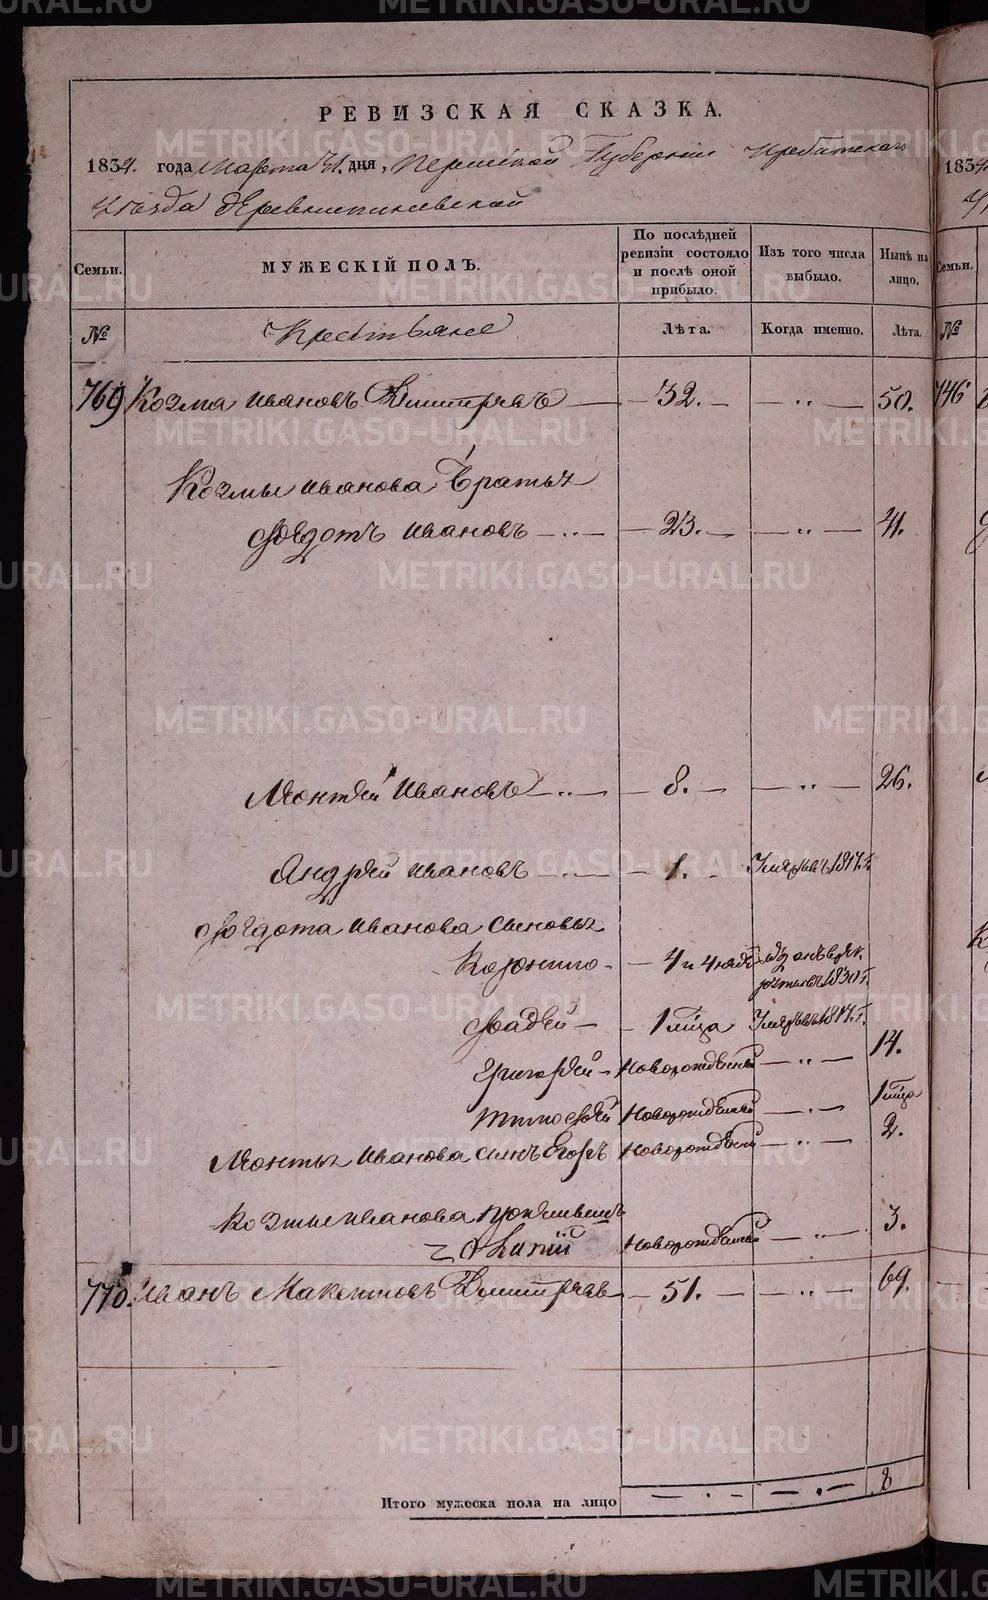 РЕВИЗСКАЯ СКАЗКА.
1834. года Марта 31. дня, Пермской Губернии Ирбитскаго
Уезда деревни
Семьи. МУЖЕСКІЙ ПОЛЪ. По послѣдней ревизіи состояло и послѣ оной прибыло. Изъ того числа выбыло. Нынѣ на лицо.
№ Крестьяне Лѣта. Когда именно. Лѣта.
769 Козма Ивановъ Дмитревъ — 32. — — „ — 50.
Козмы Иванова братья
Федотъ Ивановъ — 23. — — „ — 41.
Монтей Ивановъ — 8. — — „ — 26.
Андрей Ивановъ — 1. Умяръ въ 1817.г.
Федота Иванова сыновья
— 4 и
1830 г.
Фадей — 1 м-ца Умяръ въ 1817.г.
Григорей — Новорожденный — „ — 14.
Тимофей Новорожденный — „ — 1 м-ца
Монтея Иванова сынъ Егоръ Новорожденный — „ — 2.
Козмы Иванова
Новорожденный — „ — 3.
770. Иванъ Дмитревъ — 51. — — „ — 69.
Итого мужеска пола на лицо — „ — — „ — 8
1834
Семьи.
№
746
METRIKI.GASO-URAL.RU